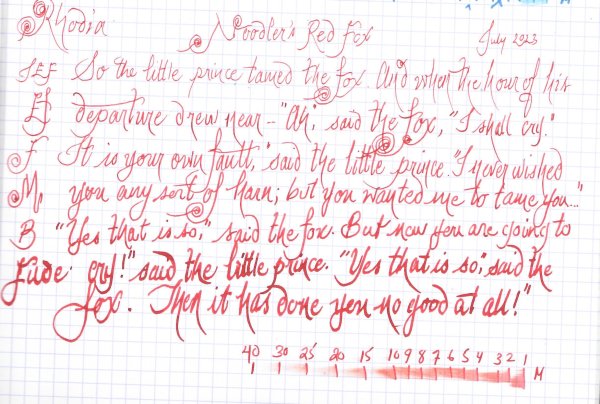 Rhodia Noodler's Red Fox July 2023
EF So the little prince tamed the fox. And when the hour of his
EF departure drew near -- "Ah", said the fox, "I shall cry."
F It is your own fault," said the little prince. "I never wished
M, you any sort of harm; but you wanted me to tame you..."
B "Yes that is so," said the fox. But now you are going to
Fude cry!" said the little prince. "Yes that is so," said the
fox. Then it has done you no good at all!"
40 30 25 20 15 10 9 8 7 6 5 4 3 2 1 M